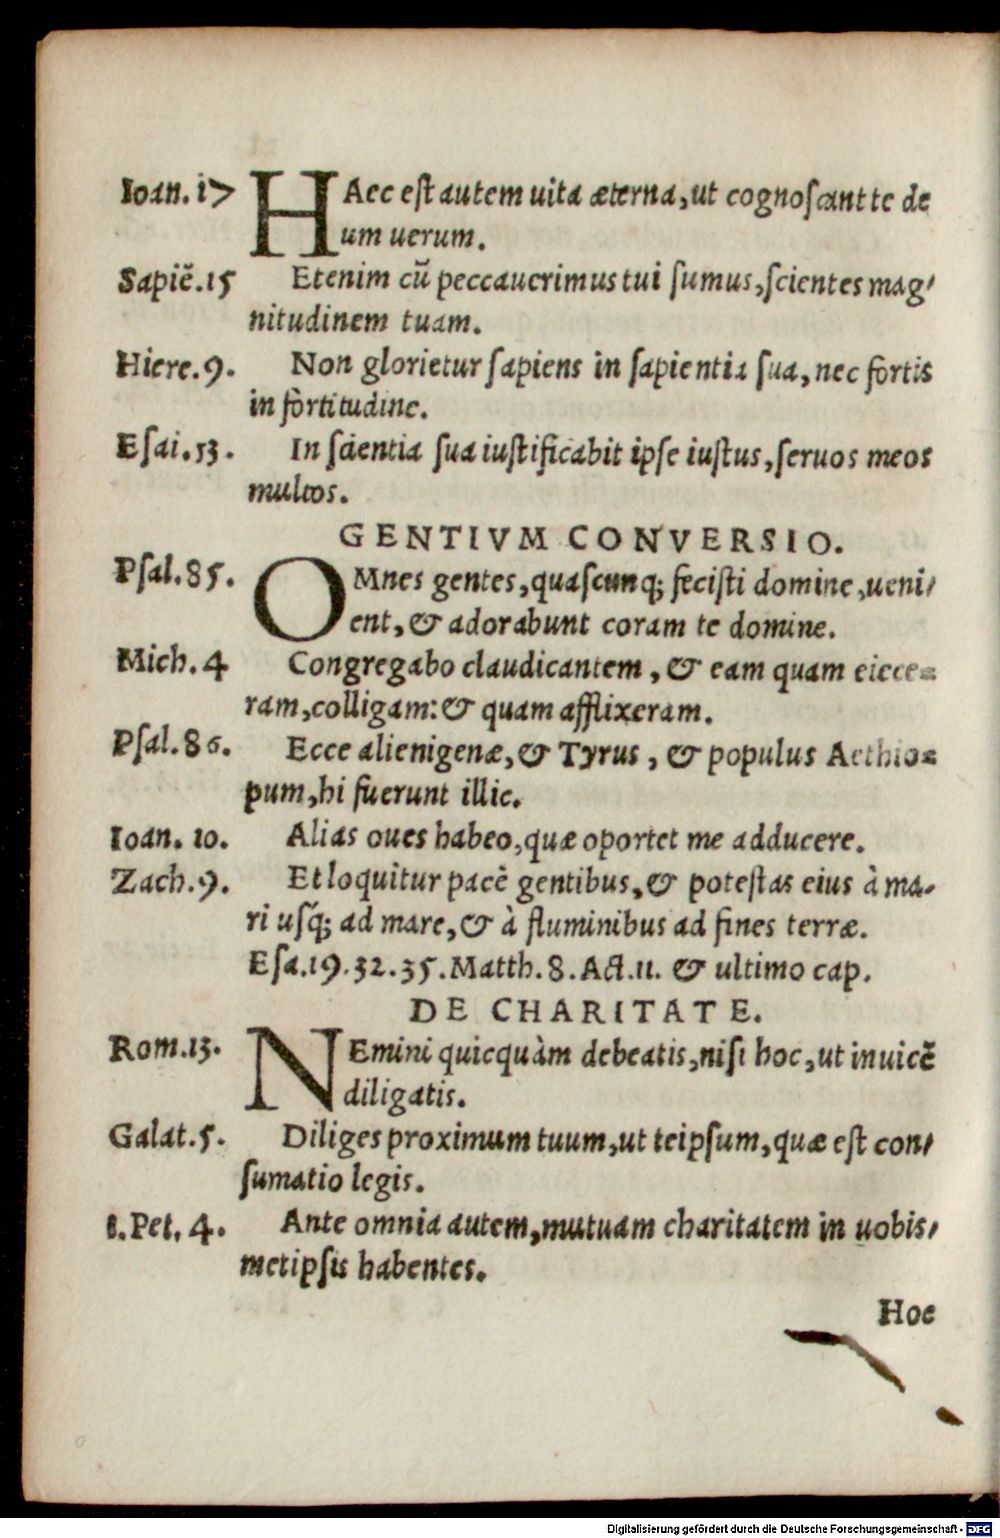 Ioan. 17 HAec est autem uita æterna, ut cognoscant te de
um uerum.
Sapiẽ. 15 Etenim cũ peccauerimus tui sumus, scientes mag-
nitudinem tuam.
Hiere. 9. Non glorietur sapiens in sapientia sua, nec fortis
in fortitudine.
Esai. 53. In scientia sua iustificabit ipse iustus, seruos meos
multos.
GENTIVM CONVERSIO.
Psal. 85. OMnes gentes, quascunq; fecisti domine, ueni-
ent, & adorabunt coram te domine.
Mich. 4 Congregabo claudicantem, & eam quam eiece-
ram, colligam: & quam afflixeram.
Psal. 86. Ecce alienigenæ, & Tyrus, & populus Aethio-
pum, hi fuerunt illic.
Ioan. 10. Alias oues habeo, quæ oportet me adducere.
Zach. 9. Et loquitur pacẽ gentibus, & potestas eius à ma-
ri usq; ad mare, & à fluminibus ad fines terræ.
Esa. 19. 32. 35. Matth. 8. Act. 11. & ultimo cap.
DE CHARITATE.
Rom. 13. NEmini quicquàm debeatis, nisi hoc, ut inuicẽ
diligatis.
Galat. 5. Diliges proximum tuum, ut teipsum, quæ est con-
sumatio legis.
1. Pet. 4. Ante omnia autem, mutuam charitatem in uobis-
metipsis habentes.
Hoc
Digitalisierung gefördert durch die Deutsche Forschungsgemeinschaft - DFG